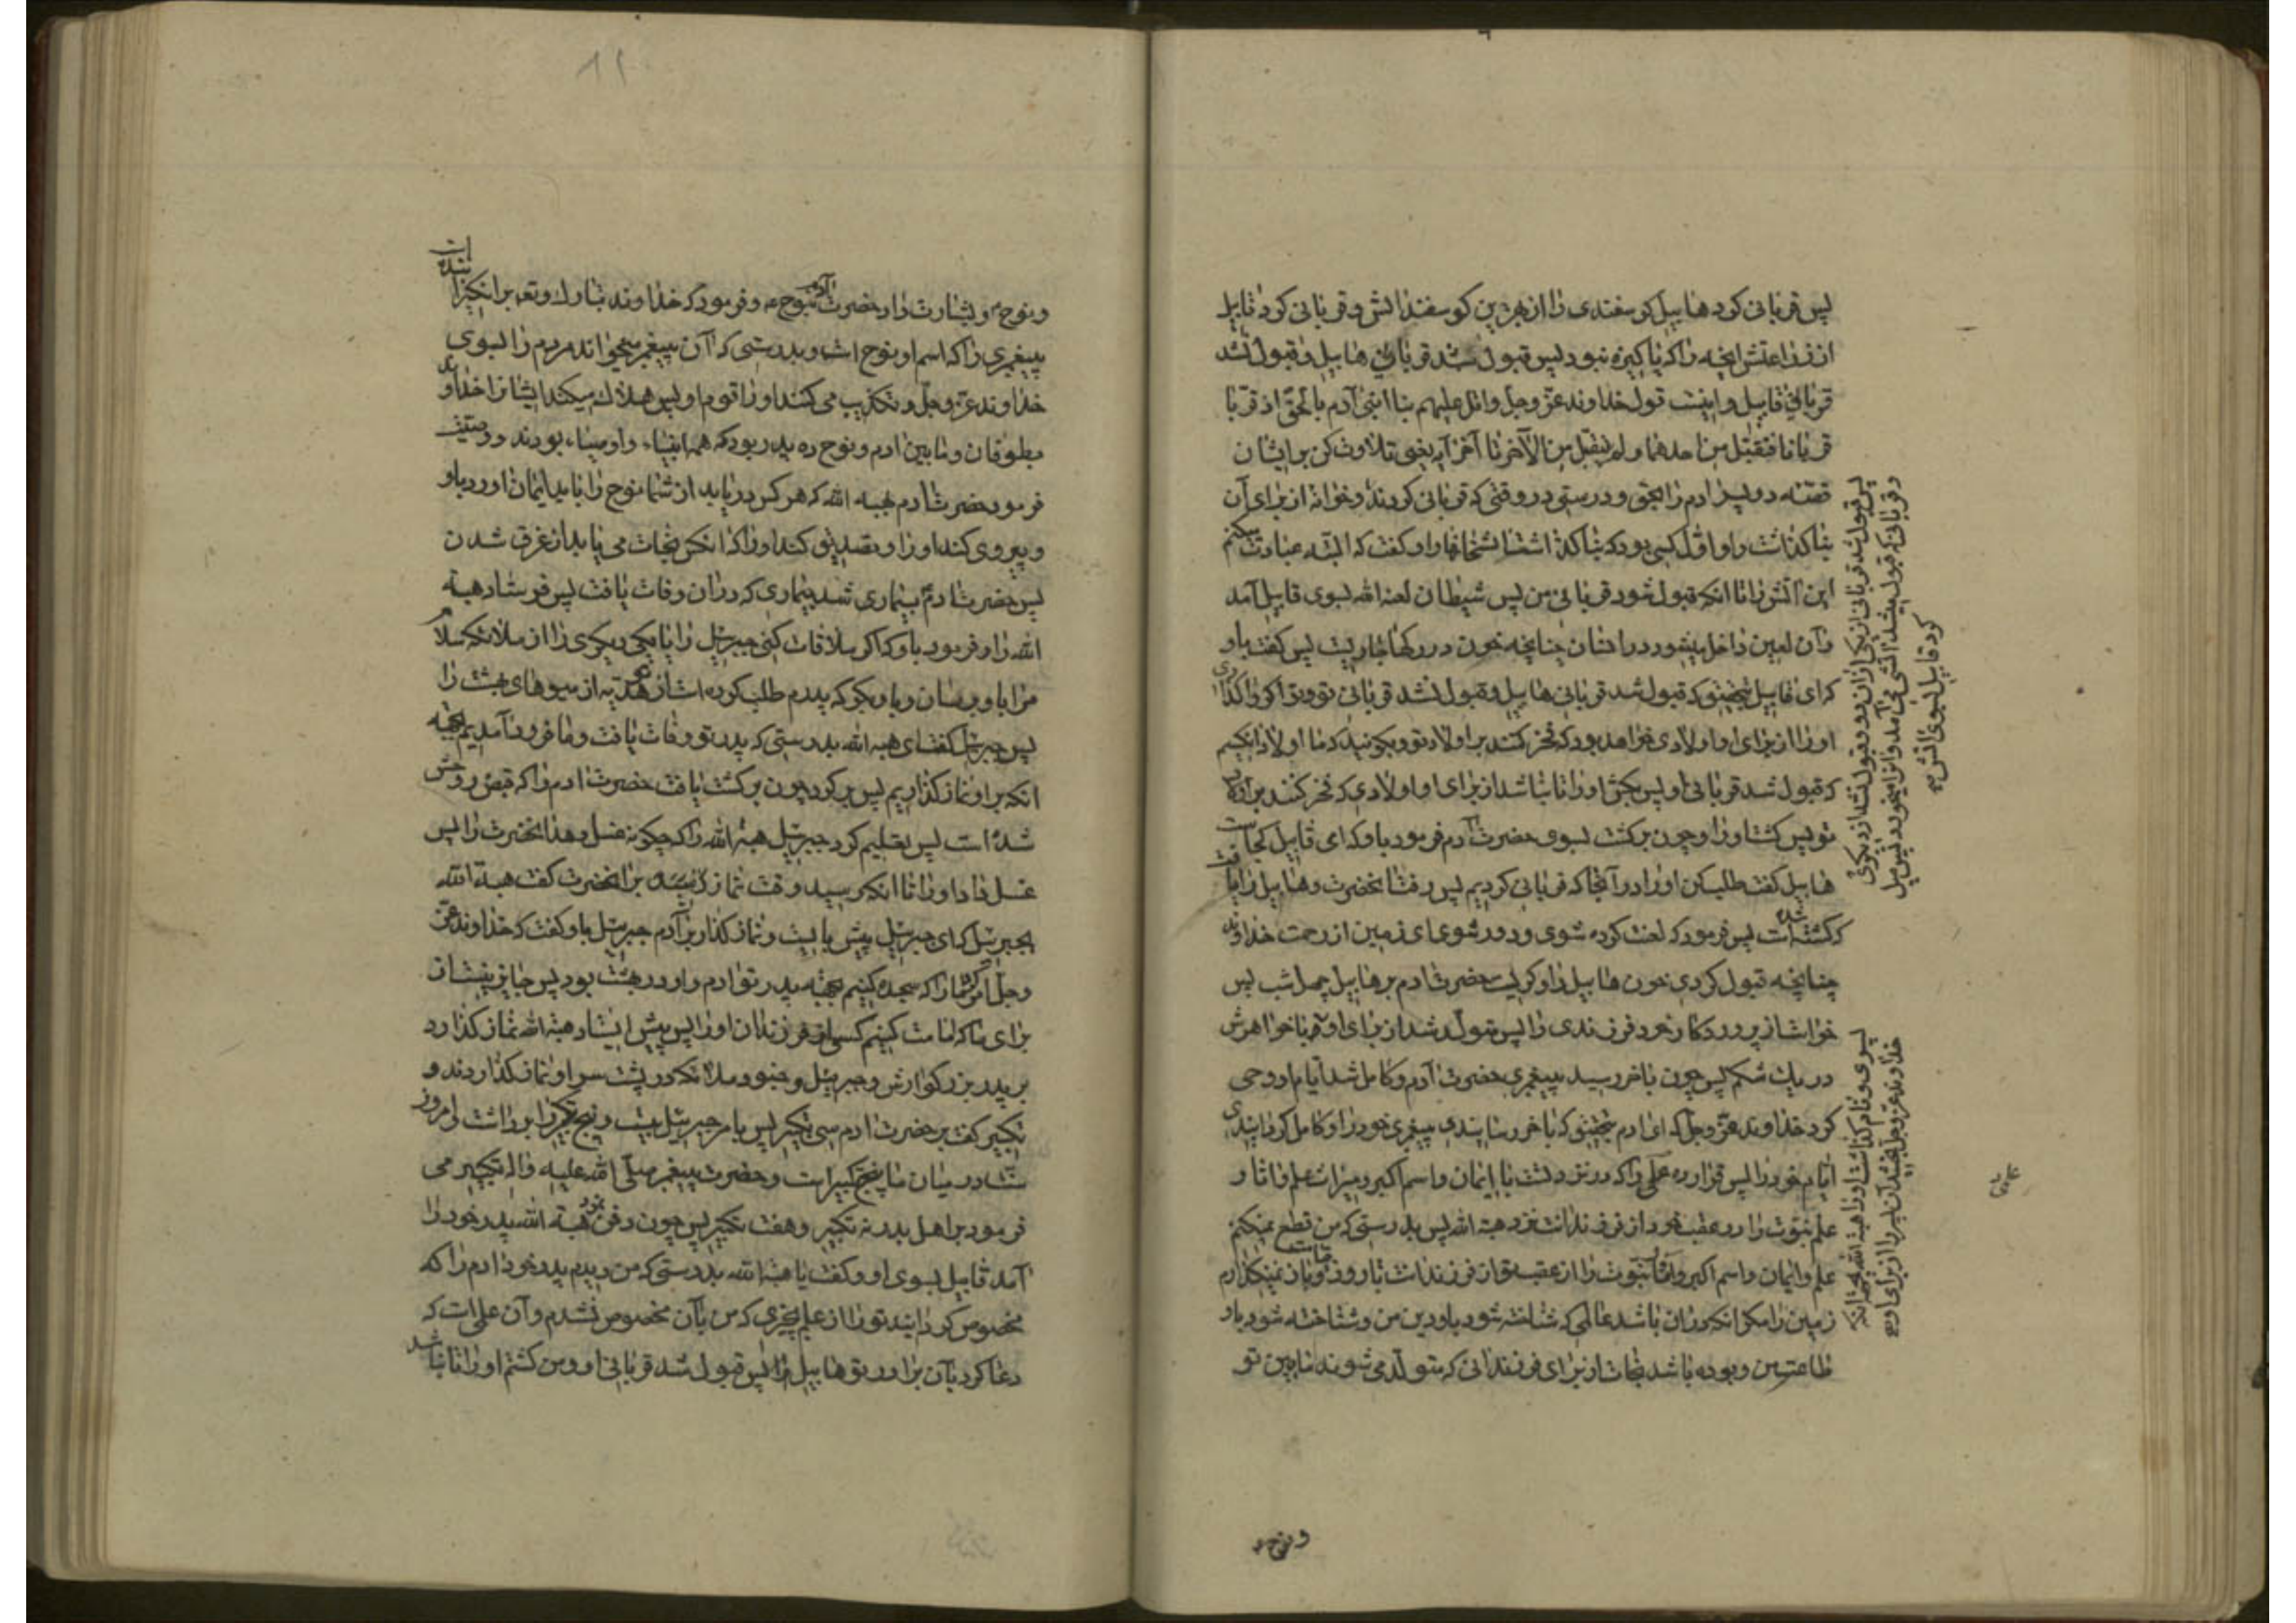 پس قربانی کرد هابیل کوسفندی را از بهترین کوسفندانش و قربانی کرد قابیل
از زراعتش انچه را که پاکیزه نبود پس قبول شد قربانی هابیل و قبول نشد
قربانی قابیل و اینست قول خداوند عزّ و جلّ واتل علیهم نبا ابنی آدم بالحقّ اذ قربا
قربانا فتقبّل من احدهما و لم یتقبل من الآخر تا آخر آیه یعنی تلاوت کن بر ایشان
قصّه دو پسر ادم را بحق و درستی در وقتی که قربانی کردند و خوانه از برای آن
بنا کذاشت و او اوّل کسی بود که بنا کذاشت اتشخانها را و کفت که البتّه عبادت میکنم
این آتش را تا انکه قبول شود قربانی من پس شیطان لعنه الله بسوی قابیل آمد
و آن لعین داخل میشود در انسان چنانچه خون در رکها جاریست پس کفت باو
که ای قابیل بتحقیق که قبول شد قربانی هابیل و قبول نشد قربانی تو و تو اکر واکذاری
او را از برای او اولادی خواهد بود که فخر کنند بر اولاد تو و بکویند که ما اولاد انکسیم
که قبول شد قربانی او پس بکش او را تا نباشد از برای او اولادی که فخر کنند بر اولاد
تو پس کشت او را و چون برکشت بسوی حضرت آدم فرمود باو که ای قابیل کجاست
هابیل کفت طلب کن او را در آنجا که قربانی کردیم پس رفت انحضرت و هابیل را یافت
که کشته شده است پس فرمود که لعنت کرده شوی و دور شوی ای زمین از رحمت خداوند
چنانچه قبول کردی خون هابیل را و کریست حضرت ادم بر هابیل چهل شب پس
خواست از پروردکار خود فرزندی را پس متولّد شد از برای او با خواهرش
در یک شکم پس چون باخر رسید پیغمبری حضرت آدم و کامل شد ایام او وحی
کرد خداوند عزّ و جلّ که ای ادم بتحقیق که باخر رسانیدی پیغمبری خود را و کامل کردانیدی
ایّام خود را پس قرار ده علمی را که در نزد تست با ایمان و اسم اکبر و میراث علم و اثار
علم نبوّت را در عقب خود از فرزندانت نزد هبة الله پس بدرستی که من قطع نمیکنم
علم و ایمان و اسم اکبر و آثار نبوّت را از عقب تو از فرزندانت تا روز قیامت و باز نمیکذارم
زمین را مکر انکه در ان باشد عالمی که شناخته شود باو دین من و شناخته شود باو
طاعت من و بوده باشد نجات از برای فرزندانی که متولّد می شوند مابین تو
پس قبول شد قربانی از یکی از ان دو و قبول نشد از دیکری
و قربانی که قبول میشد آتشی می آمد و انرا میخورد پس میل
کرد قابیل بسوی اتش
پسری و نام کذاشت او را هبة الله بجهة انکه
خداوند عزّ و جلّ بخشید آن پسر را از برای او
و نوح
۱۲
و نوح و بشارت داد حضرت آدم بنوح و فرمود که خداوند تبارک و تعه برانکیزاننده است
پیغمبری را که اسم او نوح است و بدرستی که آن پیغمبر میخواند مردم را بسوی
خداوند عزّ و جلّ و تکذیب می کنند او را قوم او پس هلاک میکند ایشانرا خداوند
بطوفان و مابین ادم و نوح ده پدر بود که همه انبیاء و اوصیاء بودند و وصیّت
فرمود حضرت ادم بهبه الله که هر کس دریابد از شما نوح را باید ایمان اورد باو
و پیروی کند او را و تصدیق کند او را که انکس نجات می یابد از غرق شدن
پس حضرت ادم بیمار شد بیماری که در ان وفات یافت پس فرستاد هبة
الله را و فرمود باو که اکر ملاقات کنی جبرئیل را یا یکی دیکری را از ملائکه سلام
مرا باو برسان و باو بکو که پدرم طلب کرده است از تو هدیّه از میوهای بهشت را
پس جبرئیل کفت ای هبه الله بدرستی که پدر تو وفات یافت و ما فرود نآمدیم بجهة
انکه بر او نماز کذاریم پس برکرد چون برکشت یافت حضرت ادم را که قبض روحش
شده است پس تعلیم کرد جبرئیل هبة الله را که چکونه غسل دهد انحضرت را پس
غسل داد او را تا انکه رسید وقت نماز بر انحضرت کفت هبة الله
بجبرئیل که ای جبرئیل پیش بایست و نماز کذار بر آدم جبرئیل باو کفت که خداوند عزّ
و جلّ امر کرد ما را که سجده کنیم بجهة پدر تو ادم و او در بهشت بود پس جایز نیست از
برای ما که امامت کنیم کسی از فرزندان او را پس پیش ایستاد هبة الله نماز کذارد
بر پدر بزرکوارش و جبرئیل و جنود ملائکه در پشت سر او نماز کذاردند و
تکبیر کفت بر حضرت ادم سی تکبیر پس بامر جبرئیل بیست و پنج تکبیر را برداشت و امروز
سنّت در میان ما پنج تکبیر است و حضرت پیغمبر صلّی الله علیه و اله تکبیر می
فرمود بر اهل بدر نه تکبیر و هفت تکبیر پس چون دفن نمود هبة الله پدر خود را
آمد قابیل بسوی او و کفت یا هبة الله بدرستی که من دیدم پدر خود ادم را که
مخصوص کردانید تو را از علم بچیزی که من بآن مخصوص نشدم و آن علمی است که
دعا کرد بآن برادر تو هابیل را پس قبول شد قربانی او و من کشتم او را تا نباشد